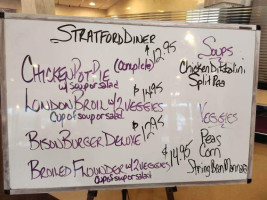 STRATFORD DINER
CHICKEN POT PIE (complete) $12.95
w/ soup or salad
LONDON BROIL w/2 VEGGIES $14.95
cup of soup or salad
BISON BURGER DELUXE $12.95
BROILED FLOUNDER w/2 VEGGIES $14.95
cup of soup or salad
SOUPS
Chicken Ditalini
Split Pea
VEGGIES
Peas
Corn
String Bean